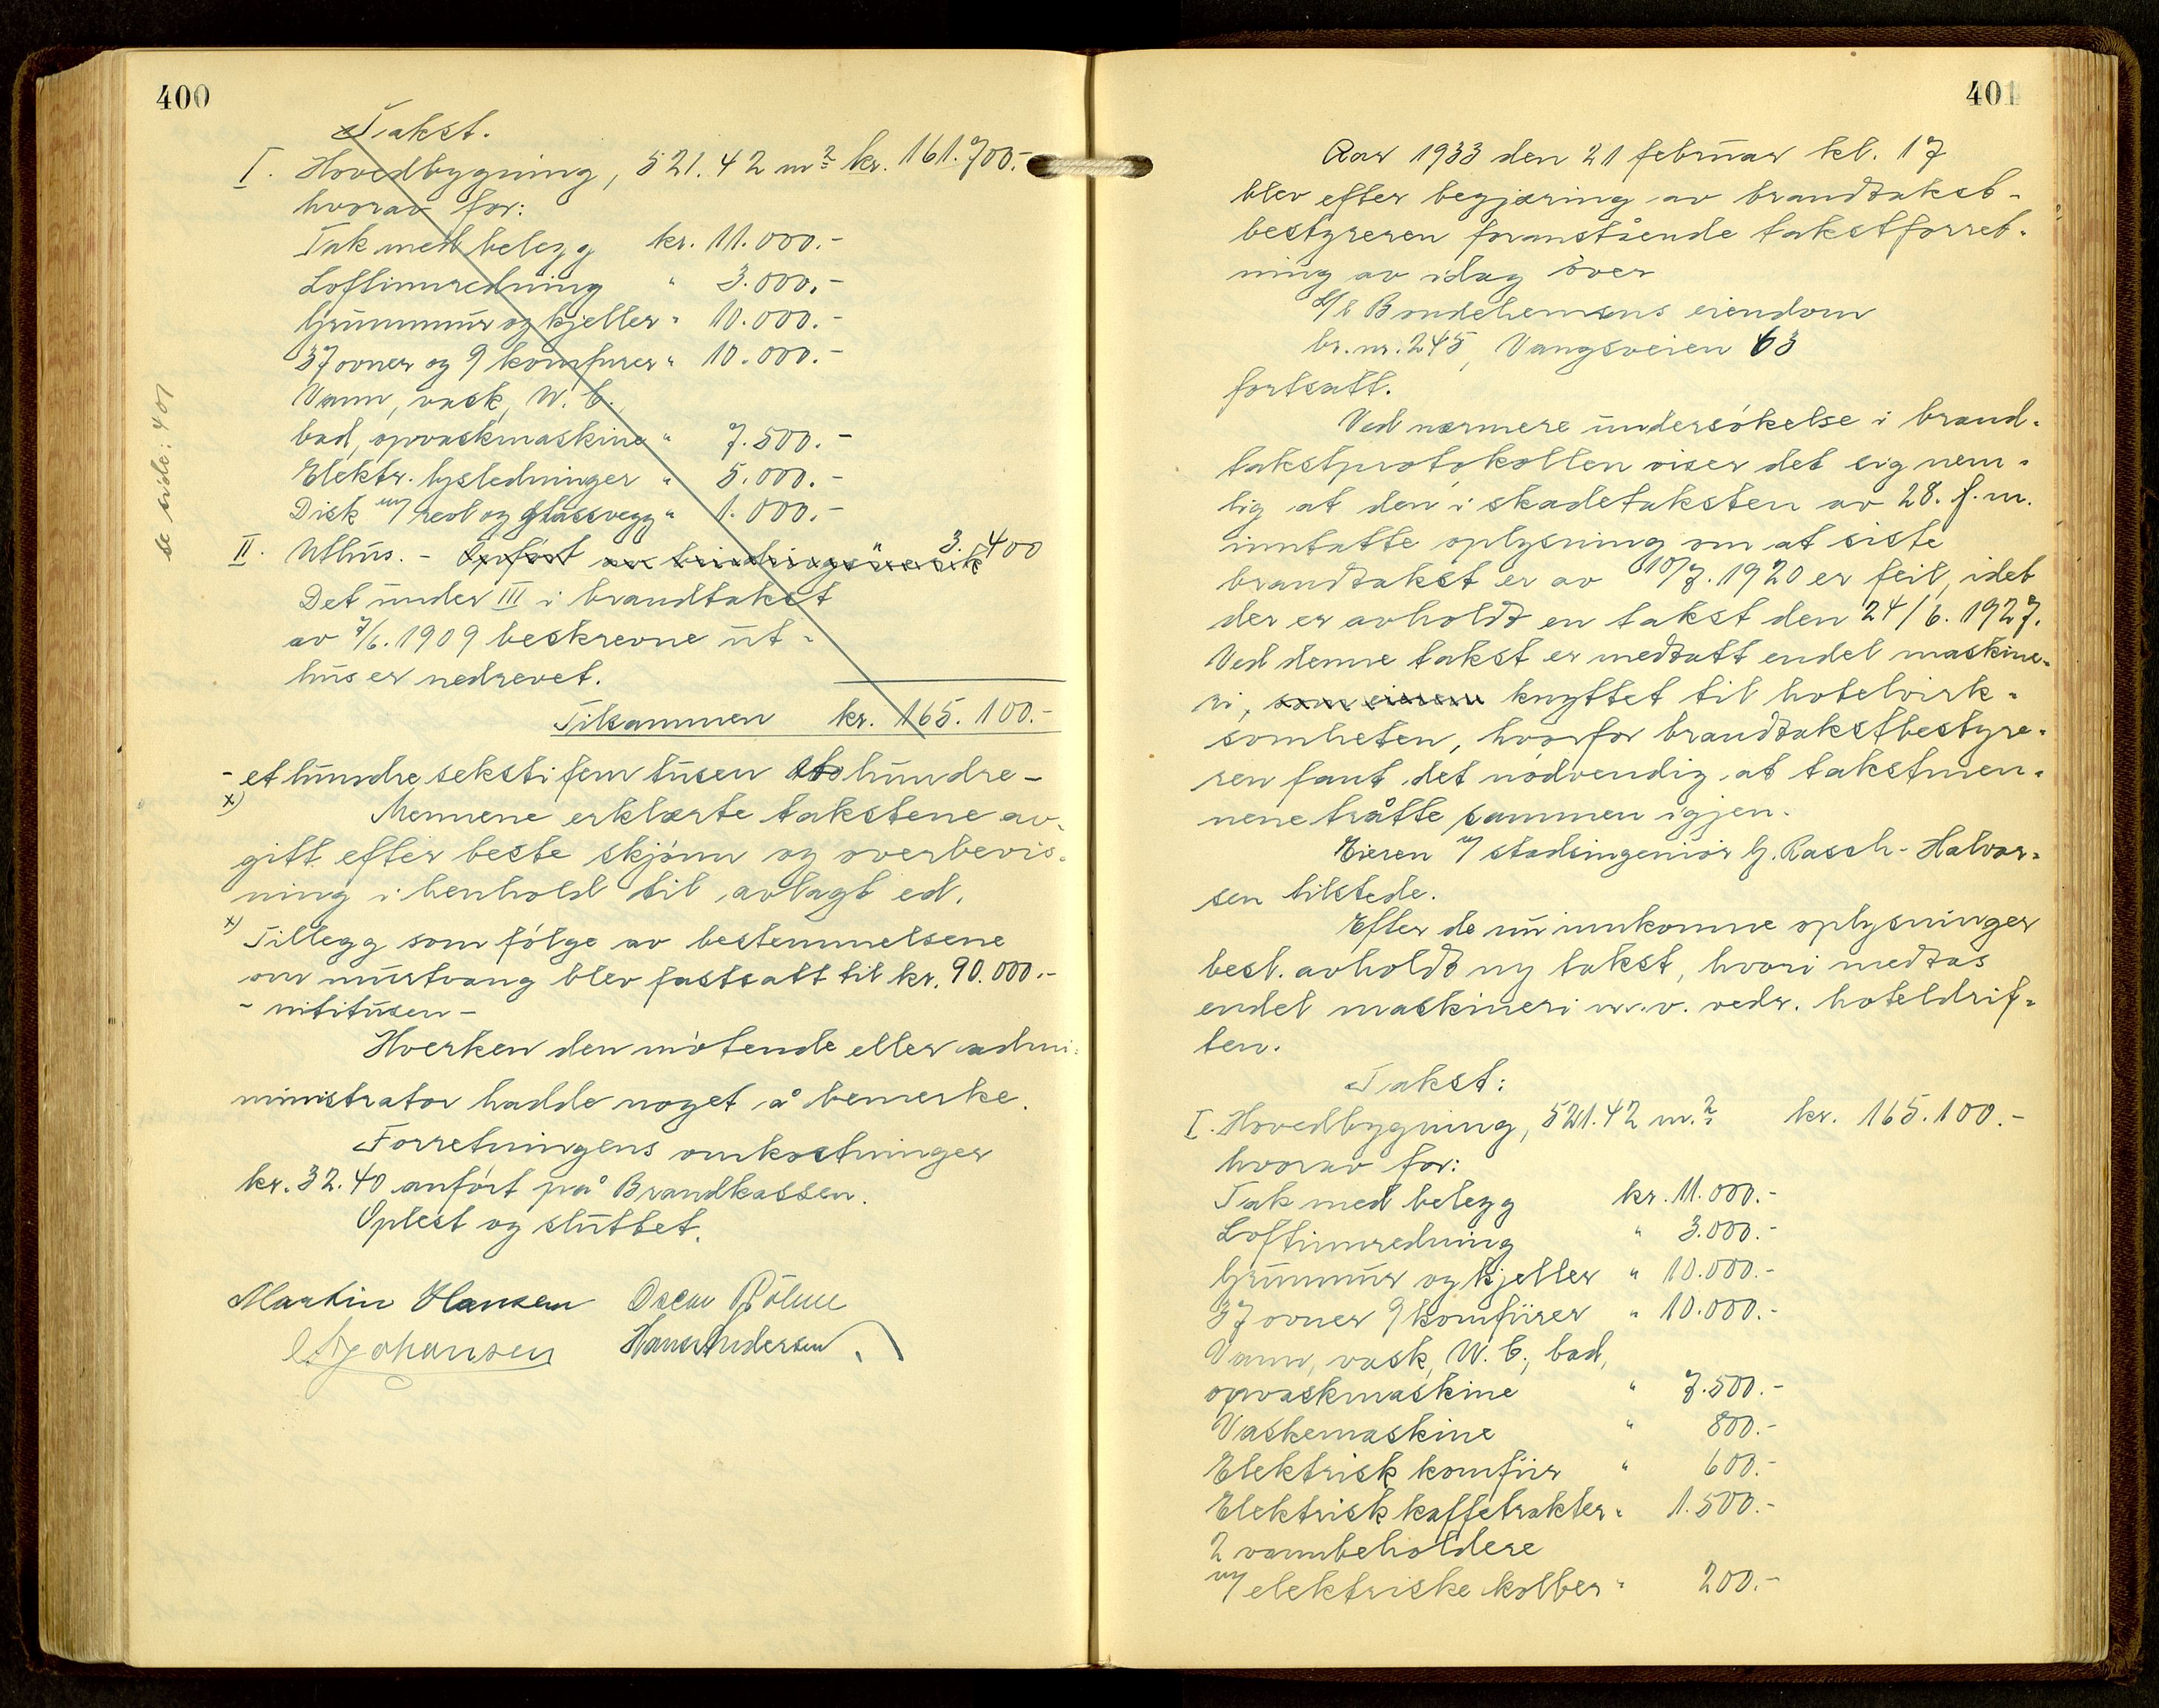 400
Takst.
I. Hovedbygning, 521.42 m² kr. 161.700.-
hvorav for:
Tak med belegg kr. 11.000.-
Loftinnredning " 3.000.-
Grunnmur og kjeller " 10.000.-
37 ovner og 9 komfurer " 10.000.-
Vann, vask, W.C.,
bad, opvaskmaskine " 7.500.-
Elektr. lysledninger " 5.000.-
Disk m/ reol og glassvegg " 1.000.-
II. Uthus. - Opført av bindingsverk 3.400
Det under III i brandtakst
av 7/6. 1909 beskrevne ut-
hus er nedrevet.
Tilsammen kr. 165.100.-
- et hundre sekstifem tusen ett hundre -
x) Mennene erklærte takstene av-
gitt efter beste skjønn og overbevis-
ning i henhold til avlagt ed.
x) Tillegg som følge av bestemmelsene
om murtvang blev fastsatt til kr. 90.000.-
- nititusen -
Hverken den møtende eller admi-
ministrator hadde noget å bemerke.
Forretningens omkostninger
kr. 32.40 anført på Brandkassen.
Oplest og sluttet.
Martin Hansen Oscar Böhme
Johansen Hans Andersen
se side: 401
401
Aar 1933 den 21 februar kl. 17
blev efter begjæring av brandtakst-
bestyreren foranstående takstforret-
ning av idag over
A/L Bondeheimens eiendom
br. nr. 245, Vangsveien 63
fortsatt.
Ved nærmere undersøkelse i brand-
takstprotokollen viser det sig nem-
lig at den i skadetaksten av 28. f.m.
inntatte oplysning om at siste
brandtakst er av 10/7. 1920 er feil, idet
der er avholdt en takst den 24/6. 1927.
Ved denne takst er medtatt endel maskine-
ri, som eieren knyttet til hotelvirk-
somheten, hvorfor brandtakstbestyre-
ren fant det nødvendig at takstmen-
nene trådte sammen igjen.
Eieren v/ stadsingeniør G. Rasch-Halvor-
sen tilstede.
Efter de nu innkomne oplysninger
besl. avholdt ny takst, hvori medtas
endel maskineri m.v. vedr. hoteldrif-
ten.
Takst:
I. Hovedbygning, 521.42 m.² kr. 165.100.-
hvorav for:
Tak med belegg kr. 11.000.-
Loftinnredning " 3.000.-
Grunnmur og kjeller " 10.000.-
37 ovner 9 komfürer " 10.000.-
Vann, vask, W.C., bad,
opvaskmaskine " 7.500.-
Vaskemaskine " 800.-
Elektrisk komfür " 600.-
Elektrisk kaffetrakter " 1.500.-
2 vannbeholdere
m/ elektriske kolber " 200.-